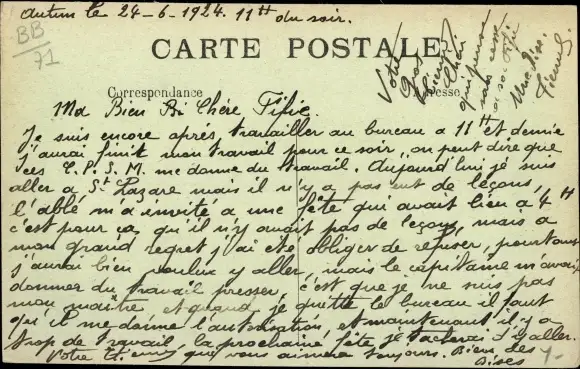 Autun le 24-6-1924. 11ᴴ du soir.
BB
71
CARTE POSTALE
Correspondance
Adresse
Votre
Gros
Vieux
Chéri
qui pense
sans cesse
a sa Fifie
Une bise
Etienne
Ma Bien Bi Chère Fifie.
Je suis encore après travailler au bureau a 11ᴴ et demie
j'aurai finit mon travail pour ce soir, on peut dire que
ces E.P.S.M. me donne du travail. Aujourd'hui je suis
aller a St Lazare mais il n'y a pas eut de leçons,
l'abbé m'a invité a une fête qui avait lieu a 4ᴴ
c'est pour ça, qu'il n'y avait pas de leçons, mais a
mon grand regret j'ai été obliger de refuser, pourtant
j'aurai bien voulux y aller, mais le capitaine m'avait
donner du travail presser, c'est que je ne suis pas
mon maître, et quand je quitte le bureau il faut
qu'il me donne l'autorisation, et maintenant il y a
trop de travail, la prochaine fête je tacherai d'y aller.
Votre Etienne que vous aimera toujours. Bien des
Bises